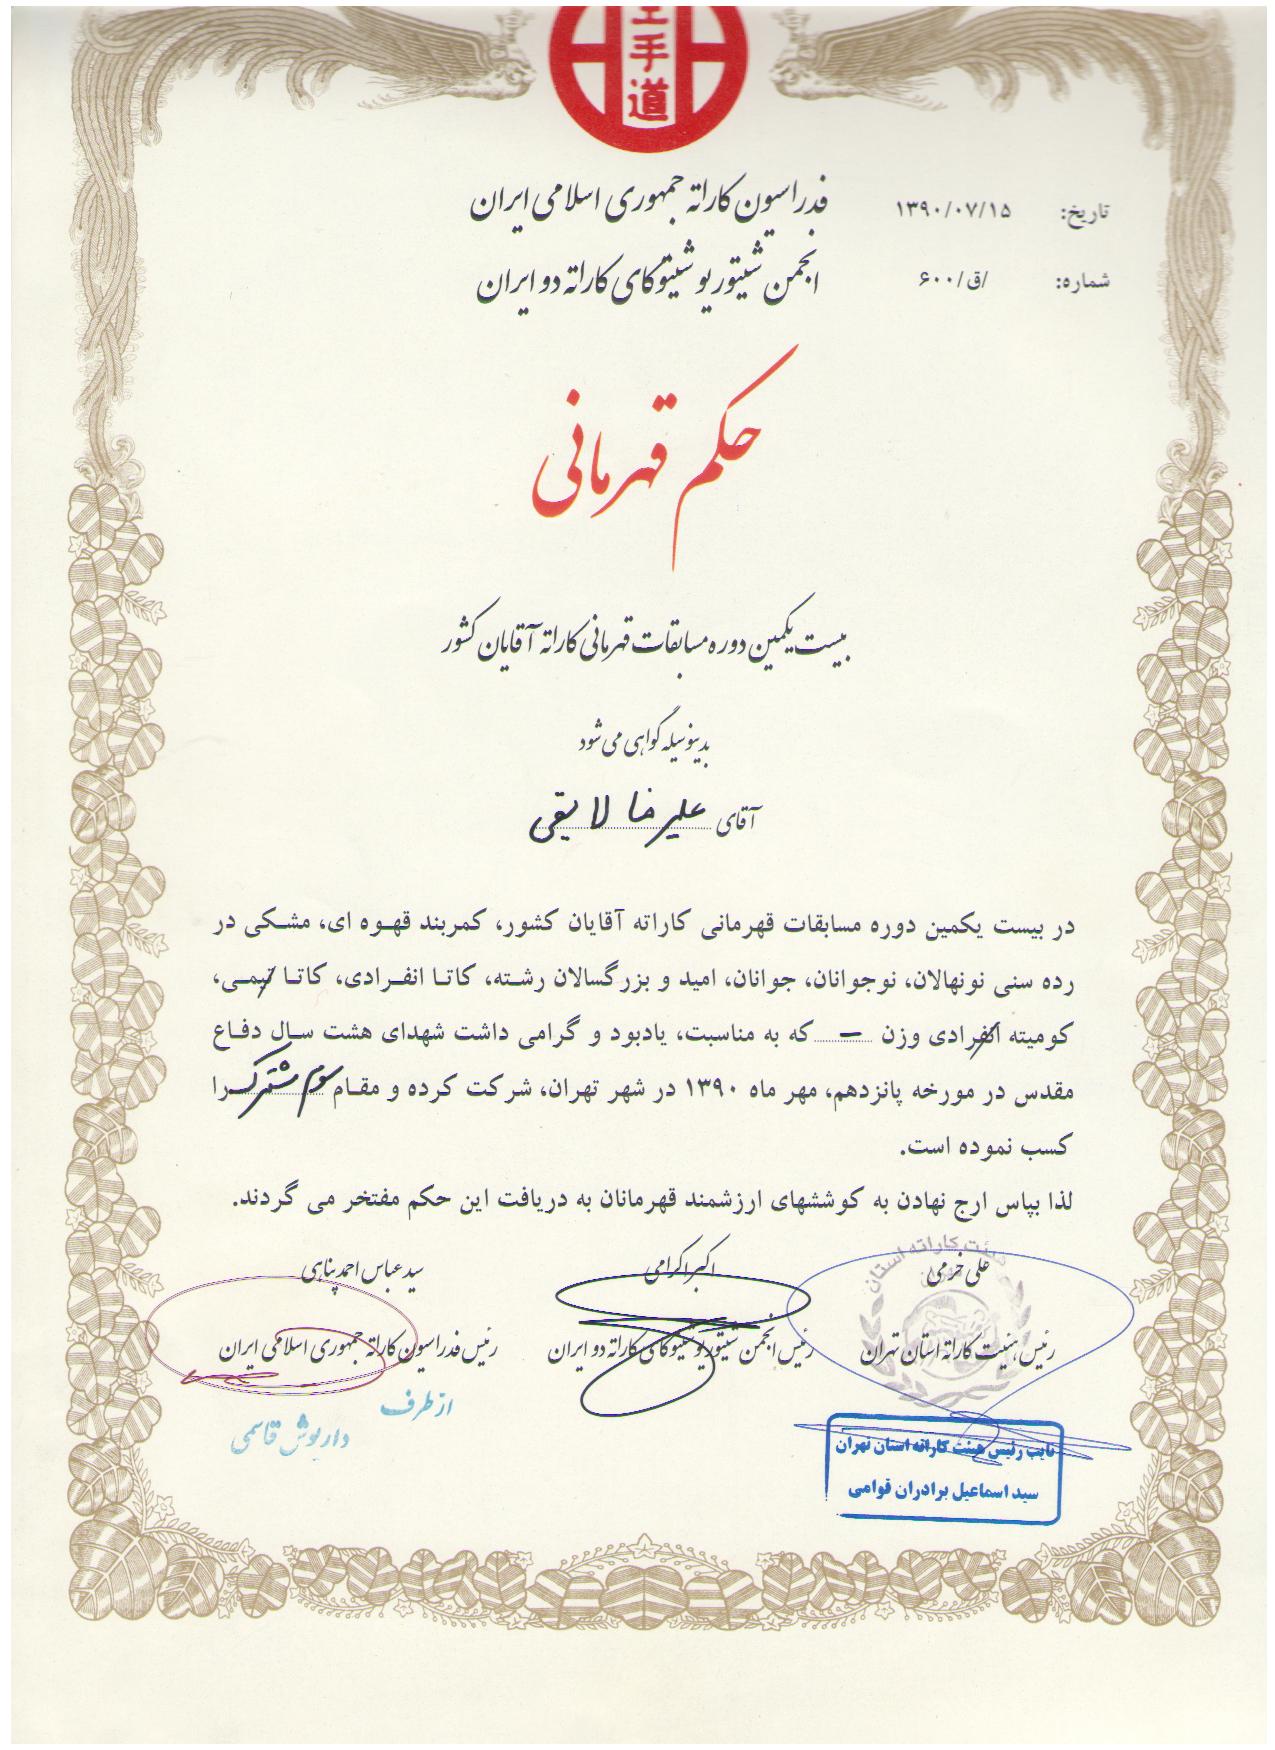 空手道
فدراسیون کاراته جمهوری اسلامی ایران
تاریخ: ۱۳۹۰/۰۷/۱۵
انجمن شیتوریو شیتوکای کاراته دو ایران
شماره: /ق/۶۰۰
حکم قهرمانی
بیست یکمین دوره مسابقات قهرمانی کاراته آقایان کشور
بدینوسیله گواهی می شود
آقای علیرضا لایقی
در بیست یکمین دوره مسابقات قهرمانی کاراته آقایان کشور، کمربند قهوه ای، مشکی در
رده سنی نونهالان، نوجوانان، جوانان، امید و بزرگسالان رشته، کاتا انفرادی، کاتا تیمی،
کومیته انفرادی وزن — که به مناسبت، یادبود و گرامی داشت شهدای هشت سال دفاع
مقدس در مورخه پانزدهم، مهر ماه ۱۳۹۰ در شهر تهران، شرکت کرده و مقام سوم مشترک را
کسب نموده است.
لذا بپاس ارج نهادن به کوششهای ارزشمند قهرمانان به دریافت این حکم مفتخر می گردند.
هیئت کاراته استان
علی خرمی
اکبر اکرامی
سید عباس احمد پناهی
رئیس هیئت کاراته استان تهران
رئیس انجمن شیتوریو شیتوکای کاراته دو ایران
رئیس فدراسیون کاراته جمهوری اسلامی ایران
از طرف
داریوش قاسمی
نایب رئیس هیئت کاراته استان تهران
سید اسماعیل برادران قوامی